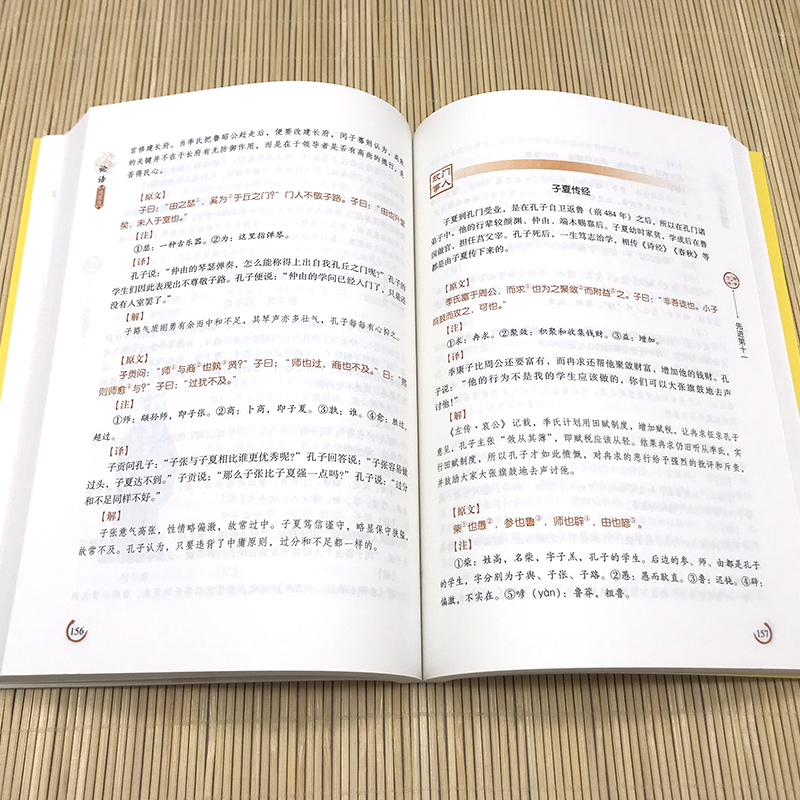 官修建长府。当季氏把鲁昭公赶走后，便要改建长府，闵子骞则认为，政府
的关键并不在于长府有无防御作用，而是在于领导者是否有高尚的德行，是
否得民心。
论语
【原文】
子曰：“由之瑟①，奚为②于丘之门？”门人不敬子路。子曰：“由也升堂
矣，未入于室也。”
【注】
①瑟：一种古乐器。②为：这里指弹琴。
【译】
孔子说：“仲由的琴瑟弹奏，怎么能称得上出自我孔丘之门呢？”孔子的
学生们因此表现出不尊敬子路。孔子便说：“仲由的学问已经入门了，只是还
没有入室罢了。”
【解】
子路气质刚勇有余而中和不足，其琴声亦多壮气，孔子每每有心抑之。
【原文】
子贡问：“师①与商②也孰③贤？”子曰：“师也过，商也不及。”曰：“然
则师愈④与？”子曰：“过犹不及。”
【注】
①师：颛孙师，即子张。②商：卜商，即子夏。③孰：谁。④愈：胜过，
超过。
【译】
子贡问孔子：“子张与子夏相比谁更优秀呢？”孔子回答说：“子张容易做
过头，子夏达不到。”子贡说：“那么子张比子夏强一点吗？”孔子说：“过分
和不足同样不好。”
【解】
子张意气高张，性情略偏激，故常过中。子夏笃信谨守，略显保守狭隘，
故常不及。孔子认为，只要违背了中庸原则，过分和不足都一样的。
156
门人故事
子夏传经
子夏到孔门受业，是在孔子自卫返鲁（前484年）之后，所以在孔门诸
弟子中，他的行辈较颜渊、仲由、端木赐靠后。子夏幼时家贫，学成后在鲁
国做官，担任莒父宰。孔子死后，一生笃志治学，相传《诗经》《春秋》等
都是由子夏传下来的。
【原文】
季氏富于周公，而求①也为之聚敛②而附益③之。子曰：“非吾徒也。小子
鸣鼓而攻之，可也。”
【注】
①求：冉求。②聚敛：积聚和收集钱财。③益：增加。
【译】
季康子比周公还要富有，而冉求还帮他聚敛财富，增加他的钱财。孔
子说：“他的行为不是我的学生应该做的，你们可以大张旗鼓地去声
讨他！”
【解】
《左传·哀公》记载，季氏计划用田赋制度，增加赋税，让冉求征求孔子
意见，孔子主张“敛从其薄”，即赋税应该从轻。结果冉求仍旧听从季氏，实
行田赋制度，所以孔子才如此愤慨，对冉求的恶行给予强烈的批评和斥责，
并鼓励大家大张旗鼓地去声讨他。
【原文】
柴①也愚②，参也鲁③，师也辟④，由也喭⑤。
【注】
①柴：姓高，名柴，字子羔，孔子的学生。后边的参、师、由都是孔子
的学生，字分别为子舆、子张、子路。②愚：愚而耿直。③鲁：迟钝。④辟：
偏激，不实在。⑤喭（yàn）：鲁莽，粗鲁。
先进第十一
157